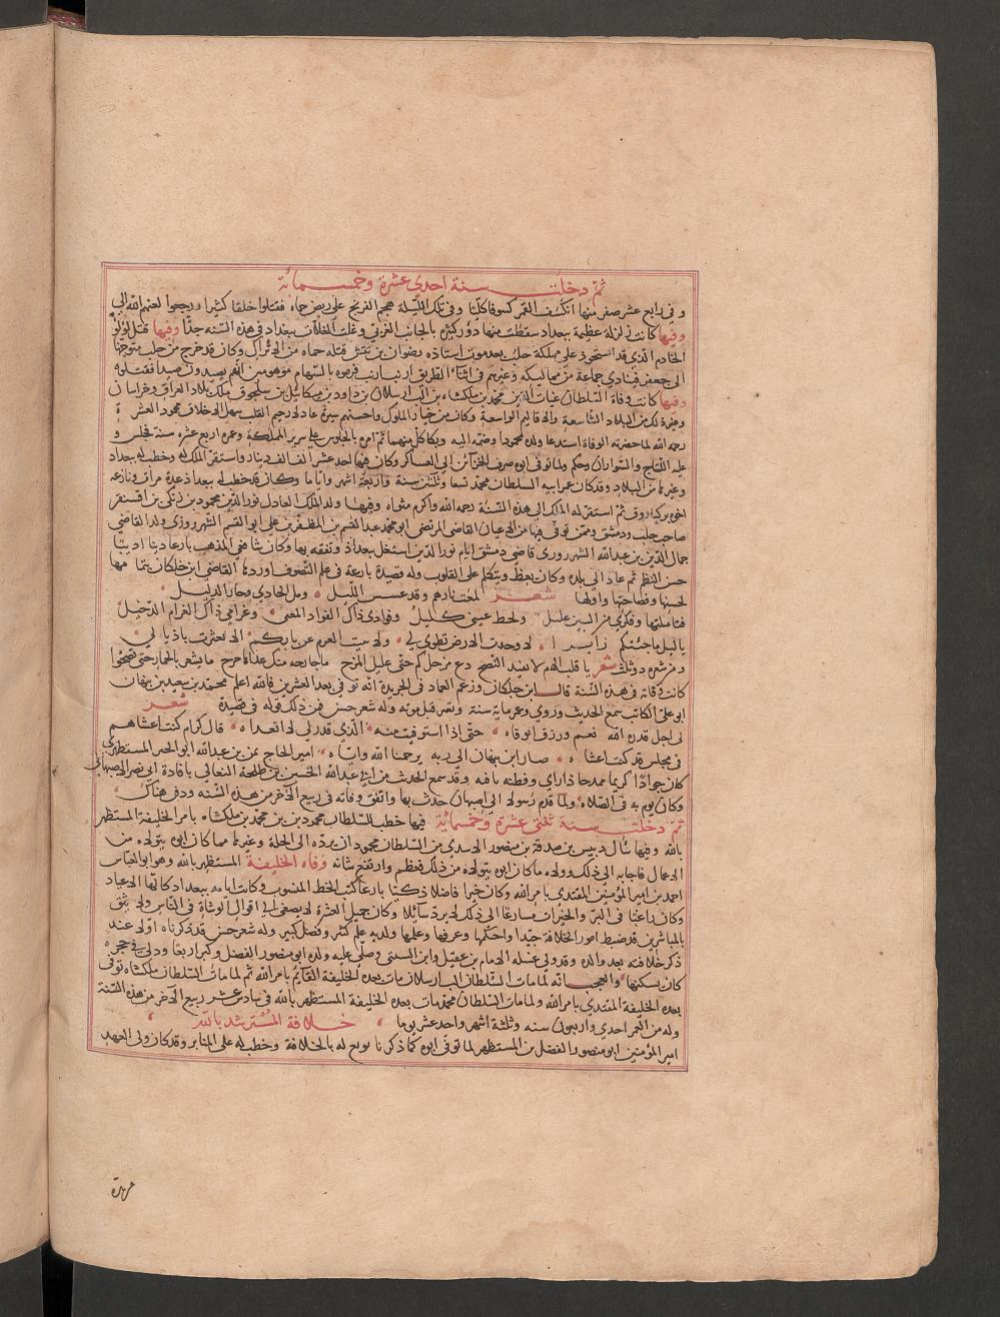 ثم دخلت سنة احدى عشرة وخمسمائة
وفي رابع عشر صفر منها انكسف القمر كسوفا كليا وفي تلك الليلة هجم الفرنج على ربض حماه فقتلوا خلقا كثيرا ورجعوا لعنهم الله الى
وفيها كانت زلزلة عظيمة ببغداد سقطت منها دور كثيرة بالجانب الغربي وغلت الغلات ببغداد في هذه السنه جدا وفيها قتل لؤلؤ
الخادم الذي قد استحوذ على مملكة حلب بعد موت استاذه رضوان بن تتش قتله جماه من الاتراك وكان قد خرج من حلب متوجها
الى جعبر فتنادى جماعة من مماليكه وغيرهم في اثناء الطريق ارنب ارنب فرموه بالسهام موهمين انهم يصيدون صيدا فقتلوه
وفيها كانت وفاة السلطان غياث الدين محمد بن ملكشاه بن الب ارسلان بن داود بن ميكائيل بن سلجوق ملك بلاد العراق وخراسان
وغير ذلك من البلاد الشاسعة والاقاليم الواسعة وكان من خيار الملوك واحسنهم سيرة عادلا رحيم القلب سهل الاخلاق محمود العشرة
رحمه الله لما حضرته الوفاة استدعا ولده محمودا وضمه اليه وبكا كل منهما ثم امره بالجلوس على سرير المملكة وعمره اربع عشره سنة فجلس و
عليه التاج والسواران وحكم ولما توفي ابوه صرف الخزائن الى العساكر وكان فيها احد عشر الف الف دينار واستقر الملك له وخطب له ببغداد
وغيرها من البلاد وقد كان عمر ابيه السلطان محمد تسعا وثلثين سنة واربعة اشهر واياما وكان قد خطب له ببغداد عدة مرات ونازعه
اخوه بركياروق ثم استقر له الملك الى هذه السنة رحمه الله واكرم مثواه وفيها ولد الملك العادل نور الدين محمود بن زنكي بن اقسنقر
صاحب حلب ودمشق وممن توفي فيها من الاعيان القاضي المرتضى ابو محمد عبد الله بن القسم بن المظفر بن علي ابو القسم الشهرزوري والد القاضي
جمال الدين بن عبد الله الشهرزوري قاضي دمشق ايام نور الدين اشتغل ببغداد وتفقه بها وكان شافعي المذهب بارعا دينا اديبا
حسن النظم ثم عاد الى بلده وكان يعظ ويتكلم على القلوب وله قصيدة بارعة في علم التصوف اوردها القاضي ابن خلكان بتمامها
لحسنها وفصاحتها واولها شعر لمعت نارهم وقد عسعس الليل ومل الحادي وحار الدليل
فتأملتها وفكري من البين عليل ولحظ عيني كليل وفوادي ذاك الفواد المعنى وغرامي ذاك الغرام الدخيل
يا ليل ما جئتكم زايرا الا وجدت الارض تطوى لي ولا ثنيت العزم عن بابكم الا تعثرت باذيالي
ومن شعره دوبيت شعر يا قلب الام لا يفيد النصح دع مزحك كم حتى عليك المزح ما جارحة منك عداها جرح ما يشعر بالخمار حتى تصحوا
كانت وفاته في هذه السنة قال ابن خلكان وزعم العماد في الجريدة انه توفي بعد العشرين فالله اعلم محمد بن سعيد بن نبهان
ابو علي الكاتب سمع الحديث وروى وعمر ماية سنة وتغير قبل موته وله شعر حسن فمن ذلك قوله في قصيدة شعر
لي اجل قدره الله نعم ورزق اتوفاه حتى اذا استوفيت منه الذي قدر لي لا اتعداه قال كرام كنت اغشاهم
في مجلس قد كنت اغشاه صار ابن نبهان الى ربه يرحمنا الله واياه امير الحاج يمن بن عبد الله ابو الخير المستظهري
كان جوادا كريما ممدحا ذا راي وفطنة ثاقبه وقد سمع الحديث من ابي عبد الله الحسين بن طلحة النعالي بافادة ابي نصر الاصبهاني
وكان يوم به في الصلاه ولما قدم رسولا الى اصبهان حدث بها واتفق وفاته في ربيع الاخر من هذه السنه ودفن هناك
ثم دخلت سنة ثنتي عشرة وخمسمائة فيها خطب للسلطان محمود بن محمد بن ملكشاه بامر الخليفة المستظهر
بالله وفيها سأل دبيس بن صدقة بن منصور الاسدي من السلطان محمود ان يرده الى الحلة وغيرها مما كان ابوه يتولاه من
الاعمال فاجابه الى ذلك وولاه ما كان ابوه يتولاه من ذلك فعظم وارتفع شانه وفاة الخليفة المستظهر بالله وهو ابو العباس
احمد بن امير المؤمنين المقتدي بامر الله وكان خيرا فاضلا ذكيا بارعا كتب الخط المنسوب وكانت ايامه ببغداد كانها الاعياد
وكان راغبا في البر والخيرات مسارعا الى ذلك لا يرد سايلا وكان جميل العشرة لا يصغي الى اقوال الوشاة في الناس ولا يثق
بالمباشرين قد ضبط امور الخلافة جيدا واحكمها وعرفها وعلمها ولديه علم كثير وفضل كبير وله شعر حسن قد ذكرناه اولا عند
ذكر خلافته بعد والده وقد ولي غسله الامام بن عقيل وابن السني وصلى عليه ولده ابو منصور الفضل وكبر اربعا ودفن في حجرة
كان يسكنها والعجب انه لما مات السلطان الب ارسلان مات بعده الخليفة القائم بامر الله ثم لما مات السلطان ملكشاه توفي
بعده الخليفة المقتدي بامر الله ولما مات السلطان محمد مات بعده الخليفة المستظهر بالله في سادس عشر ربيع الاخر من هذه السنة
وله من العمر احدى واربعون سنه وثلثة اشهر واحد عشر يوما خلافة المسترشد بالله
امير المؤمنين ابو منصور الفضل بن المستظهر لما توفي ابوه كما ذكرنا بويع له بالخلافة وخطب له على المنابر وقد كان ولي العهد